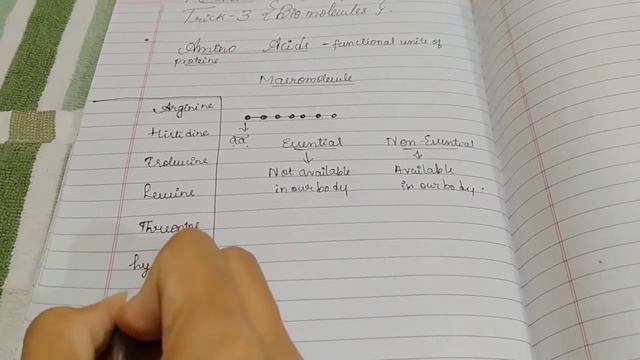 Trick-3 {Biomolecules}.
Amino Acids - functional units of
proteins
Macromolecule
Arginine
Histidine
aa
Essential
Non-Essential
Isoleucine
Not available
Available
Leucine
in our body
in our body.
Threonine
Ly